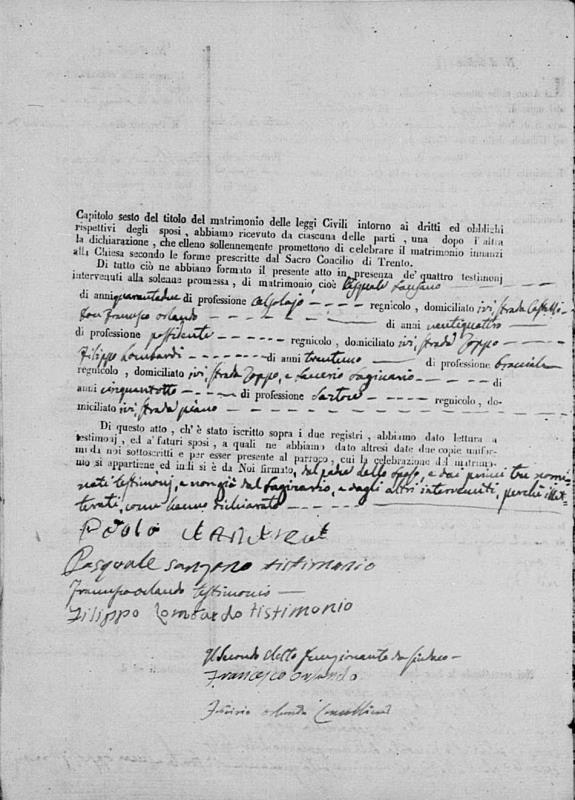 Capitolo sesto del titolo del matrimonio delle leggi Civili intorno ai dritti ed obblighi
rispettivi degli sposi, abbiamo ricevuto da ciascuna delle parti, una dopo l'altra
la dichiarazione, che elleno sollennemente promettono di celebrare il matrimonio innanzi
alla Chiesa secondo le forme prescritte dal Sacro Concilio di Trento.
Di tutto ciò ne abbiamo formato il presente atto in presenza de' quattro testimonj
intervenuti alla solenne promessa, di matrimonio, cioè
di anni quarantadue di professione Calzolajo regnicolo, domiciliato ivi, strada
Don Francesco Orlando di anni ventiquattro
di professione possidente regnicolo, domiciliato ivi, strada Zoppo
Filippo Lombardi di anni trentuno di professione bracciale
regnicolo, domiciliato ivi, strada Zoppo, e di
anni cinquantotto di professione Sartore regnicolo, do-
miciliato ivi strada piano
Di questo atto, ch' è stato iscritto sopra i due registri, abbiamo dato lettura a'
testimonj, ed a' futuri sposi, a quali ne abbiamo dato altresì date due copie unifor-
mi da noi sottoscritti e per esser presente al parroco, cui la celebrazione del matrimo-
nio si appartiene ed indi si è da Noi firmato, dal padre dello sposo, e dai primi tre nomi-
nati testimonj, e non già dal e dagli altri intervenuti, perché illet-
terati, come hanno dichiarato
Paolo
Pasquale sanzano tistimonio
Francesco Orlando testimonio
Filippo Lombardo tistimonio
Il Secondo eletto funzionante da Sindaco
Francesco Orlando